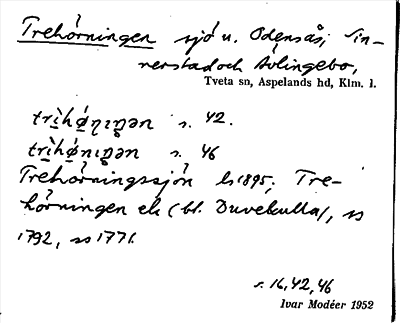 Trehörningen sjö u. Odensås, Sin-
nerstad och Avlingebo,
Tveta sn, Aspelands hd, Klm. l.
s. 42.
s. 46
Trehörningssjön ls 1895, Tre-
hörningen ek (bl. Duvekulla), ss
1792, ss 1771.
s. 16, 42, 46
Ivar Modéer 1952